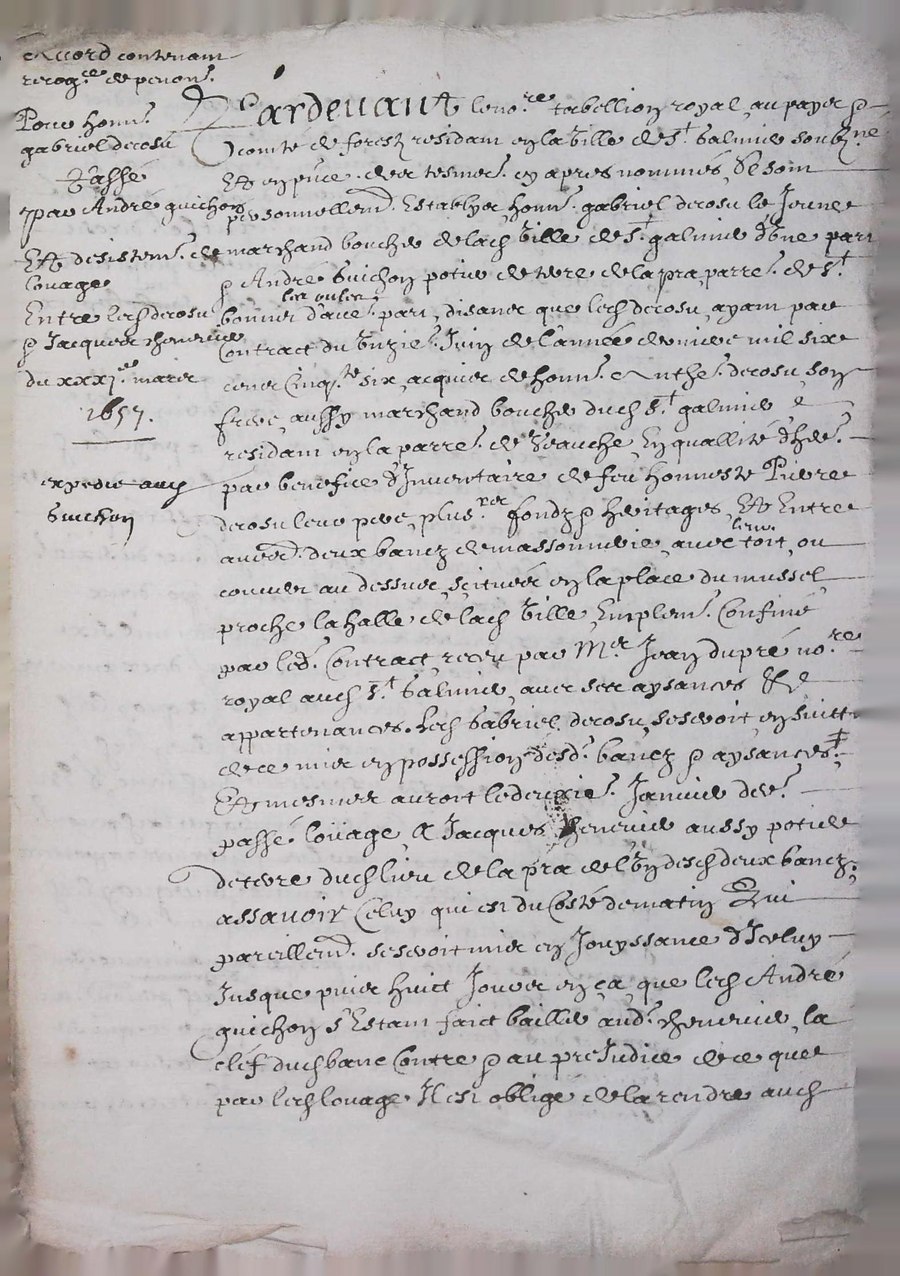 Accord contenant
recog.ce de pention.
Pour honn.
gabriel decosu
Passé
par André guichon
Et desistem.t de
louage
Entre led. decosu
& Jacques
du xxxj.e mars
1657.
expedie aud.
Guichon
Pardevant le no.re tabellion royal, au pays &
comté de forestz residant en la ville de S.t Galmier soubz.né
Et en p.nce des tesmoins cy apres nommés, Se sont
personnellem.t Establys honn. gabriel decosu le Jeune
marchand boucher de lad. ville de S.t galmier d'une part
& André Guichon potier de terre de la pra, parre. de S.t
bonnet d'aue. part, disants que led. decosu, ayant par
Contract du Unzie. Juin de l'année derniere mil six
cens Cinq.te six, acquis de honn. Anthe. decosu son
frere, aussy marchand boucher dud. S.t galmier &
residant en la parre. de Veauche, En quallité d'her.
par benefice d'Inventaire de feu honneste Pierre
decosu leur pere, plus.rs fondz & heritages, Et Entre
autres. deux bancz de massonnerie, avec leur toit, ou
couvert au dessus, scitués en la place du
proche la halle de lad. Ville, Emplem. Confiné
par led. Contract, receu par M.e Jean dupré no.re
royal aud. S.t Galmier, avec ses aysances &
appartenances. Led. Gabriel decosu, se seroit en suitte
de ce mis en possession desd. bancz & aysances
Et mesmes auroit le deuzie. Janvier der.
passé louage, A Jacques aussy potier
de terre dud. lieu de la pra de l'Un desd. deux bancz,
assavoir Celuy qui est du Costé de matin Qui
pareillem.t se seroit mis en Jouyssance d'Iceluy
Jusque puis huict Jours en ça, que led. André
guichon s'Estant faict bailler aud. la
clef dud. banc Contre & au preJudice de ce que
par led. louage Il est obligé de la rendre aud.